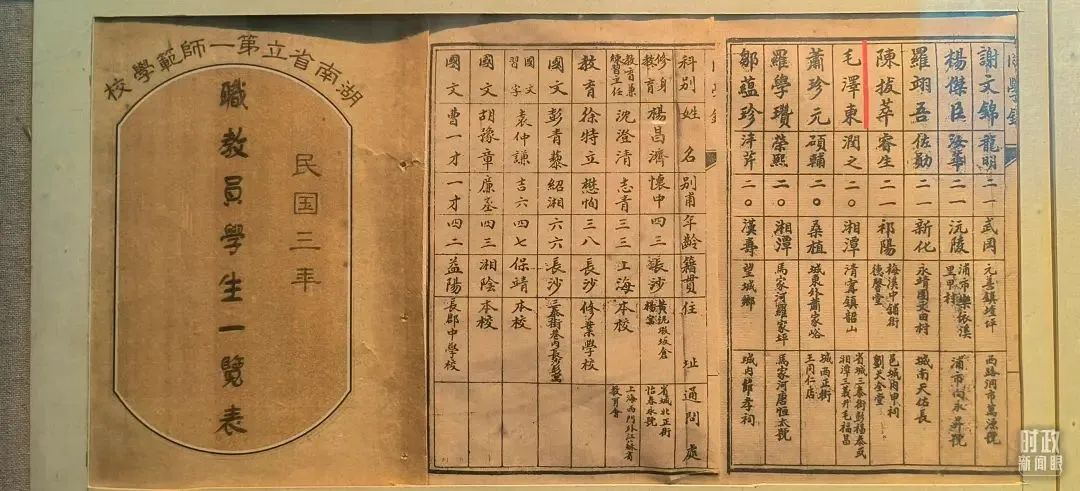 湖南省立第一師範學校
民国三年
職教員學生一覽表
科別 姓名 別甫 年齡 籍貫 住址 通問處
修身 教育 楊昌濟 懷中 四三 長沙
教育兼 練習主任 沈澄清 志青 三三 上海 本校
教育 徐特立 懋恂 三八 長沙 修業學校
國文 彭青藜 紹湘 六六 長沙
國文 習字 袁仲謙 吉六 四七 保靖 本校
國文 胡豫章 廉丞 四三 湘陰 本校
國文 曹一才 一才 四二 益陽 長郡中學校
同學錄
謝文錦 龍明 二一 武岡 元善鎮 西路洞市萬源號
楊傑臣 汝華 二一 沅陵 浦市樂依溪里甲村 浦市向永昇號
羅翊吾 佐勛 二一 新化 永靖團文田村 城南天佑長
陳拔萃 睿生 二一 祁陽 梅溪中鋪街德馨堂 邑城內甲祠劉天全堂
毛澤東 潤之 二〇 湘潭 清寗鎮韶山 省城三泰街彭福泰或湘潭三義井毛福昌
蕭珍元 碩輔 二〇 桑植 城東外蕭家峪 城西正街王同仁店
羅學瓚 榮熙 二〇 湘潭 馬家河羅家坪 馬家河唐恒太號
鄒蘊珍 泮芹 二〇 漢壽 望城鄉 城內鄒孝祠
时政
新闻眼